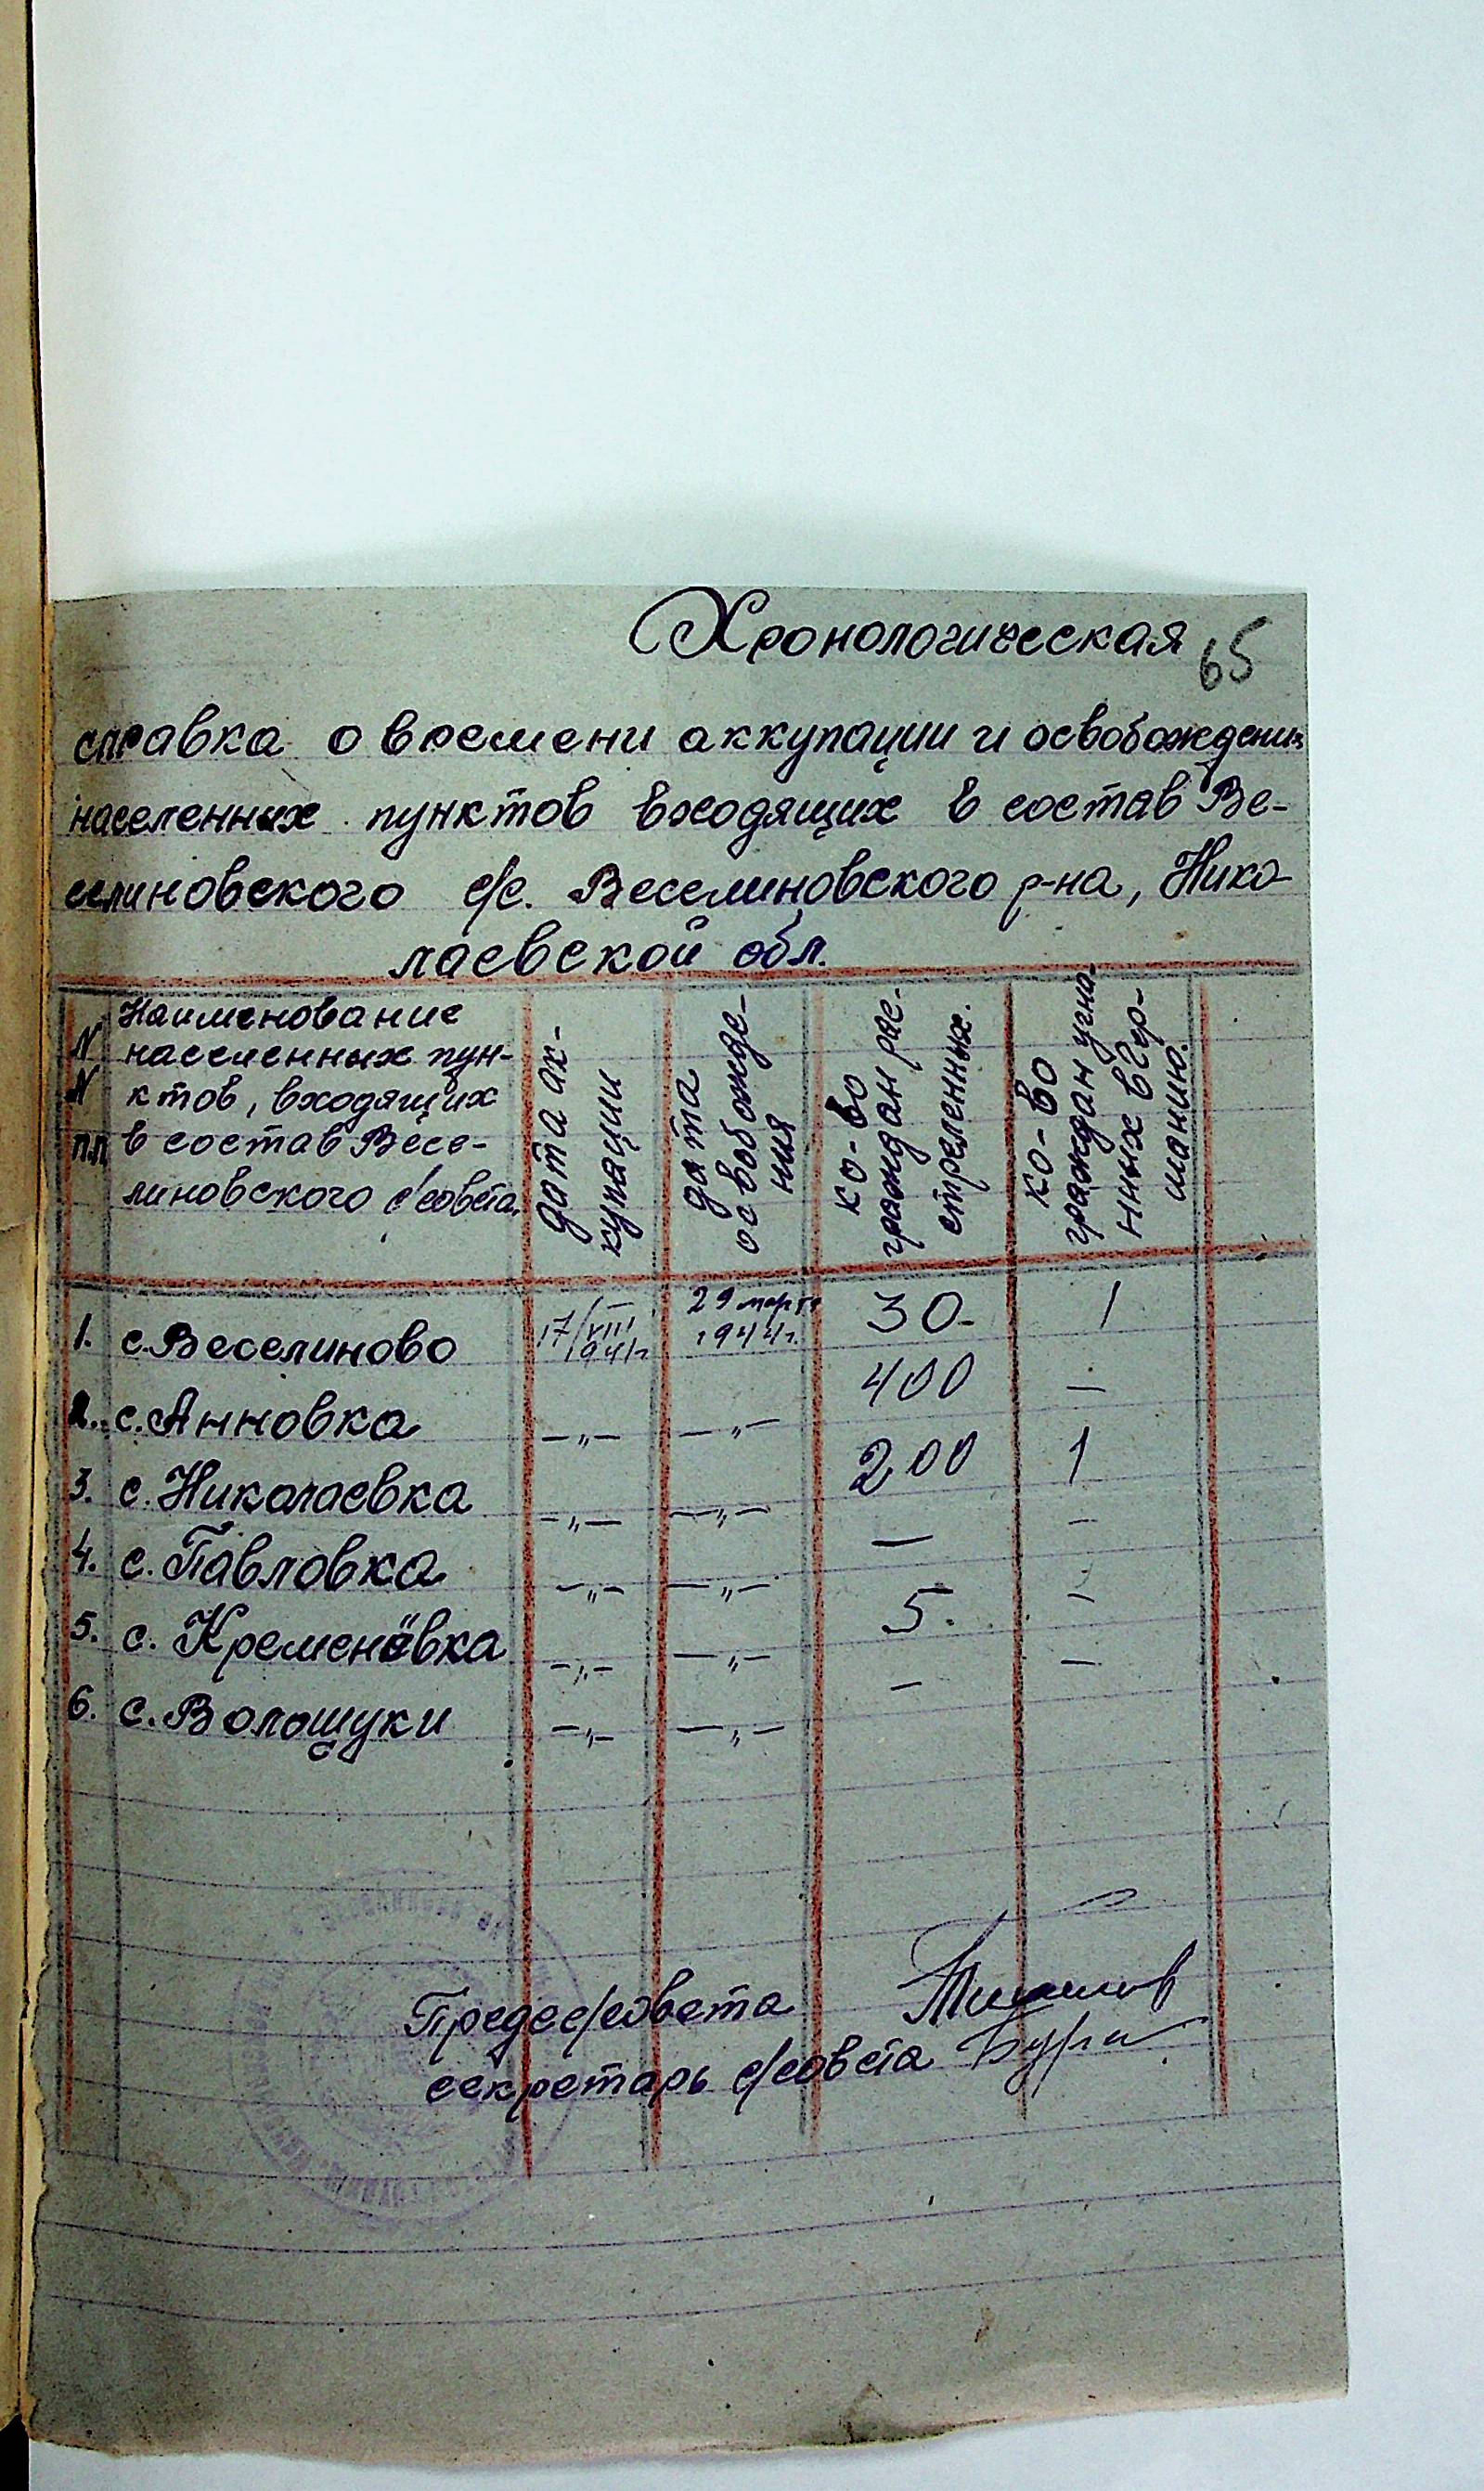 Хронологическая
65
справка о времени аккупации и освобождения
населенных пунктов входящих в состав Ве-
селиновского с/с. Веселиновского р-на, Нико-
лаевской обл.
N
N
п.п
Наименование
населенных пун-
ктов, входящих
в состав Весе-
линовского с/совета.
дата ак-
купации
дата
освобожде-
ния
ко-во
граждан рас-
стреленных.
ко-во
граждан угна-
нных в Гер-
манию.
1. с. Веселиново 17/VIII 1941г 29 марта 1944г. 30- 1
2. с. Анновка —„— —„— 400 —
3. с. Николаевка —„— —„— 200 1
4. с. Павловка —„— —„— — –
5. с. Кременёвка —„— —„— 5. –
6. с. Волощуки —„— —„— – —
Предс с/совета
секретарь с/совета